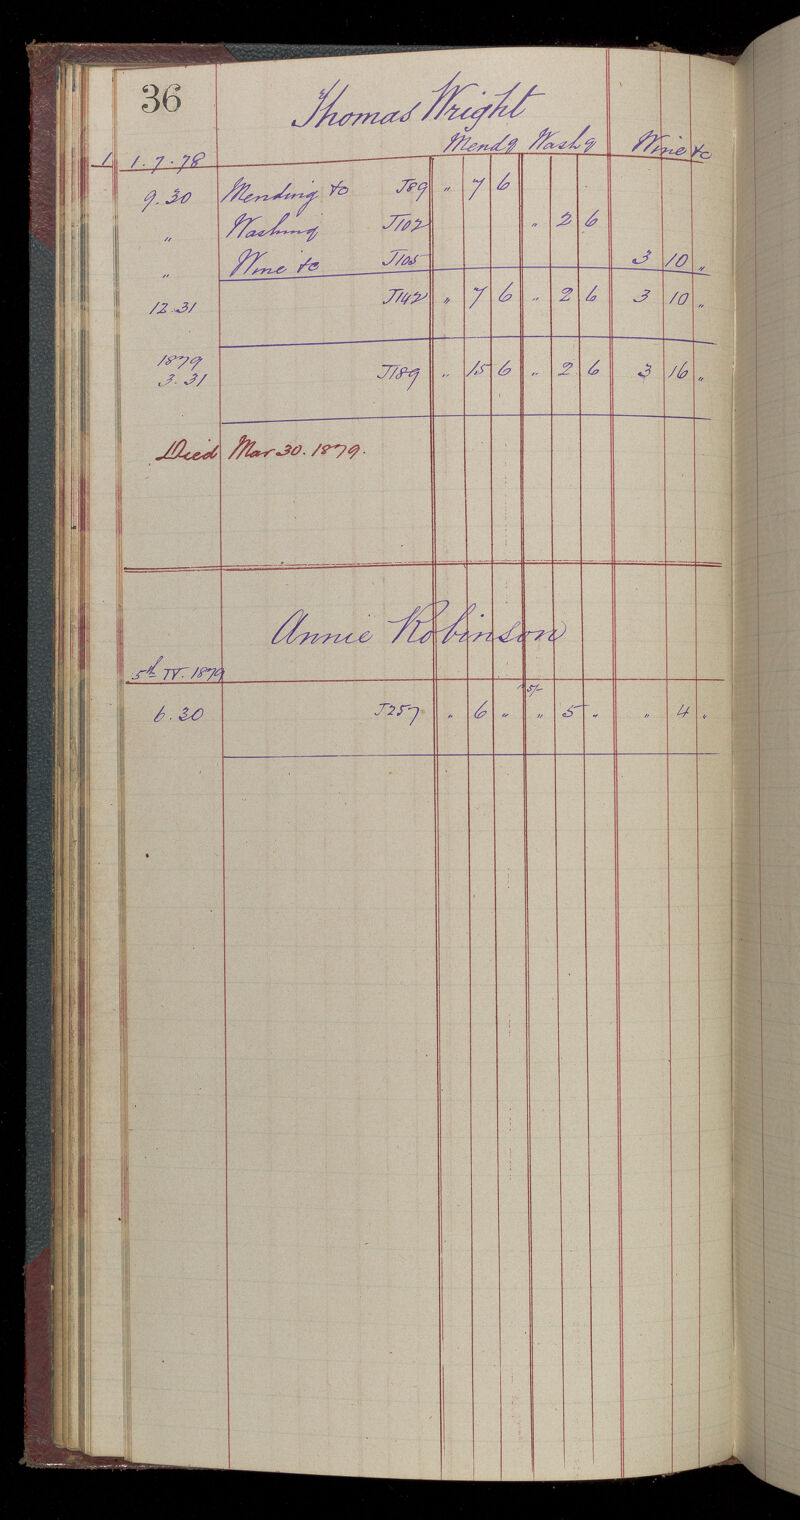 36
Thomas Wright
Mendg Washg Wine &c
1 1.7.78
9.30 Mending &c J89 " 7 6
" Washing J102 " 2 6
" Wine &c J105 3 10 "
12.31 J142 " 7 6 " 2 6 3 10 "
1879
3.31 J189 " 15 6 " 2 6 3 16 "
Died Mar 30. 1879.
Annie Robinson
5th IV. 1879
5/-
6.30 J257 " 6 " " 5 " " 4 "